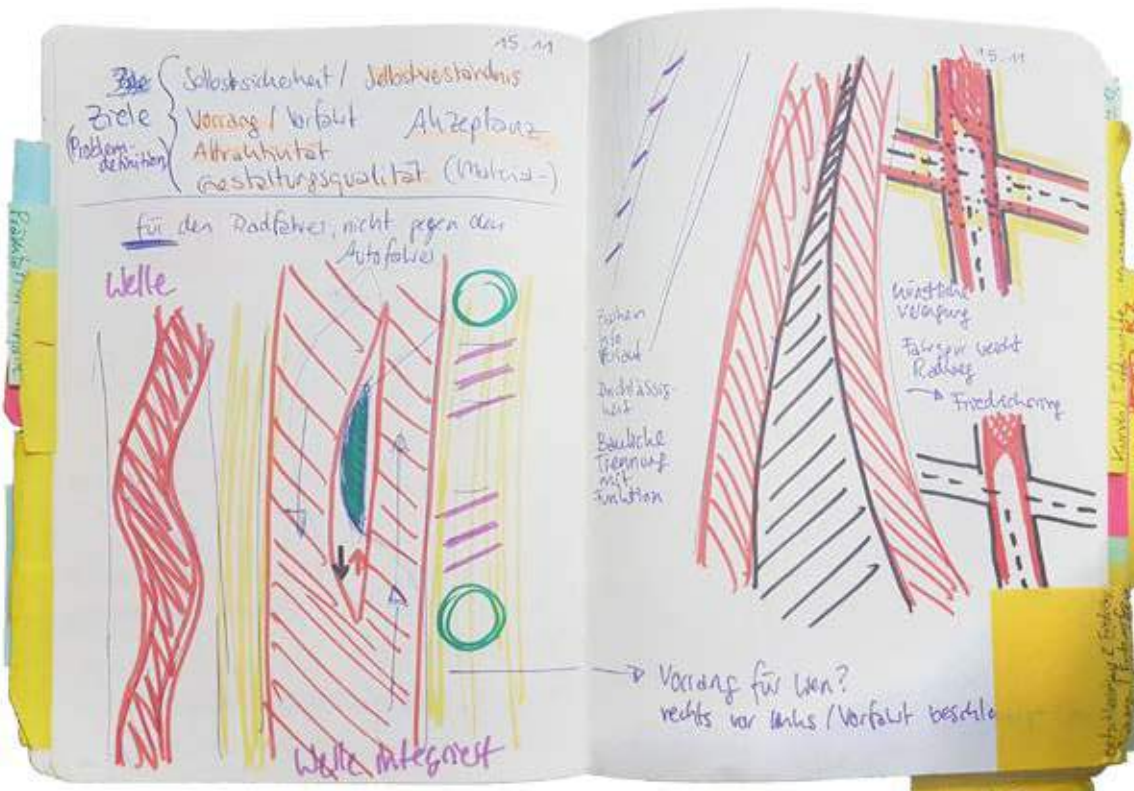 15.11
Ziele
(Problem-
definition)
Selbstsicherheit / Selbstverständnis
Vorrang / Vorfahrt Akzeptanz
Attraktivität
Gestaltungsqualität (Material-)
für den Radfahrer, nicht gegen den
Autofahrer
Welle
Welle integriert
15.11
Verlauf
Durchlässig-
keit
Bauliche
Trennung
mit
Funktion
künstliche
Verengung
Fahrspur weicht
Radweg
Vorrang für wen?
rechts vor links / Vorfahrt